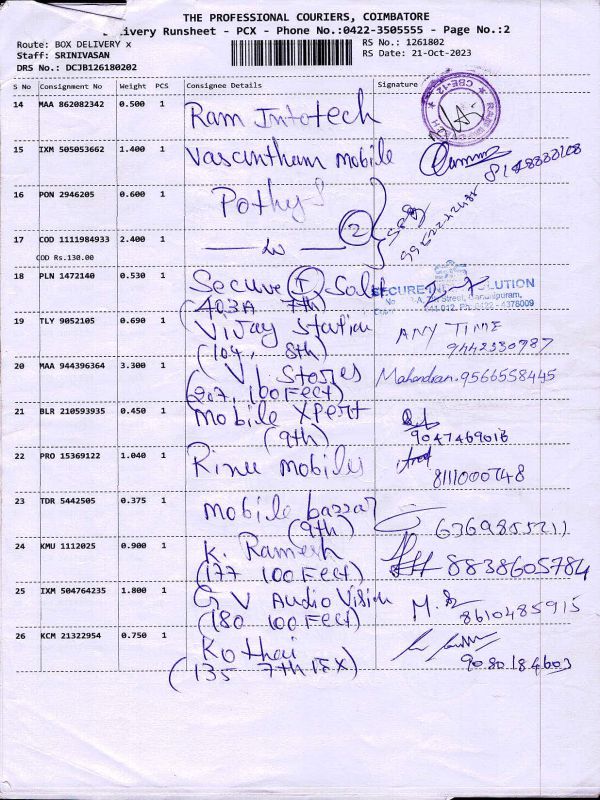 THE PROFESSIONAL COURIERS, COIMBATORE
Delivery Runsheet - PCX - Phone No.:0422-3505555 - Page No.:2
Route: BOX DELIVERY x
RS No.: 1261802
Staff: SRINIVASAN
RS Date: 21-Oct-2023
DRS No.: DCJB126180202
S No Consignment No Weight PCS Consignee Details Signature
14 MAA 862082342 0.500 1 Ram Infotech
CBE-12
15 IXM 505053662 1.400 1 Vasantham mobile
8148833108
16 PON 2946205 0.600 1 Pothy's
2
17 COD 1111984933 2.400 1
COD Rs.130.00
18 PLN 1472140 0.530 1 Secure IT Sol
SECURE SOLUTION
(403A 7th)
Street, Gandhipuram,
641 012. Ph: 0422 - 4376009
19 TLY 9052105 0.690 1 Vijay Station ANY TIME
(104, 8th) 9442330787
20 MAA 944396364 3.300 1 V.I Stores Mahendran.9566558445
(207, 100 Feet)
21 BLR 210593935 0.450 1 Mobile Xpert
(9th) 9047469016
22 PRO 15369122 1.040 1 Rinu mobiles
8111000748
23 TDR 5442505 0.375 1 mobile bazzar
(9th) 6369855211
24 KMU 1112025 0.900 1 K. Ramesh
(177 100 Feet) 8838605784
25 IXM 504764235 1.800 1 G V Audio Vision
(180 100 Feet) 8610485915
26 KCM 21322954 0.750 1 Kothai
(135 7th Ex) 9080184603